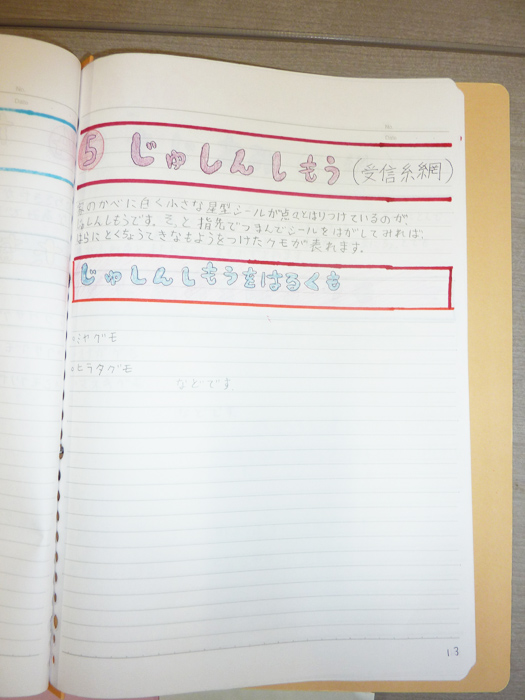 ⑤ じゅしんしもう(受信糸網)
のかべに白く小さな星型シールが点々とはりつけているのが
じゅしんしもうです。そっと指先でつまんでシールをはがしてみれば、
はらにとくちょうてきなもようをつけたクモが表れます。
じゅしんしもうをはるくも
○ミヤグモ
○ヒラタグモ
などです。
13